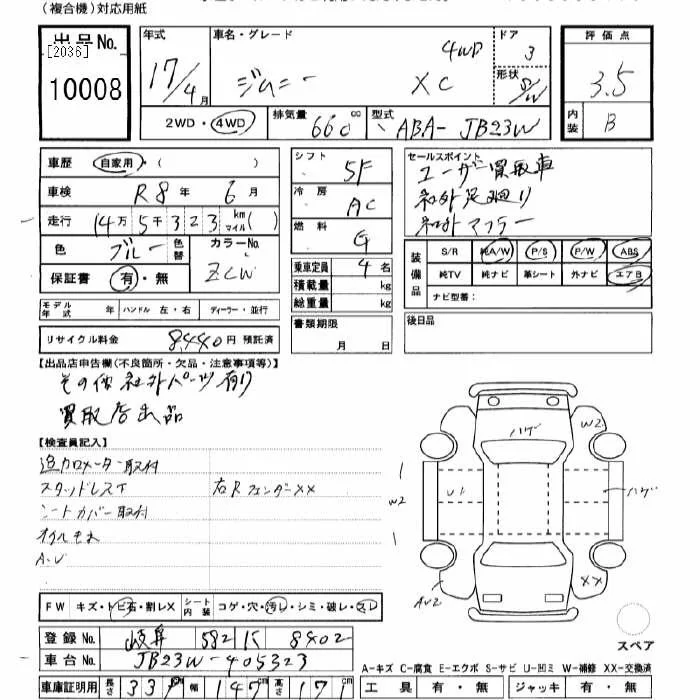 (複合機)対応用紙
出品No. 年式 車名・グレード ドア 評価点
[2036] 4WD 3
10008 17/4月 ジムニー XC 形状 3.5
2WD・4WD 排気量 660 cc 型式 ABA- JB23W 内装 B
車歴 自家用・( ) シフト 5F セールスポイント
ユーザー買取車
車検 R8年 6月 冷房 AC 社外足廻り
走行 14万5千323km マイル( ) 社外マフラー
色 ブルー 色替 カラーNo. 燃料 G
ZCW 乗車定員 4名 装備品 S/R 純A/W P/S P/W ABS
保証書 有・無 積載量 kg 純TV 純ナビ 革シート 外ナビ エアB
モデル年式 年 ハンドル 左・右 ディーラー・並行 総重量 kg ナビ型番:
リサイクル料金 8,440円 預託済 書類期限 月 日 後日品
【出品店申告欄(不良箇所・欠品・注意事項等)】
その他社外パーツ有り
買取店出品
【検査員記入】
追加メーター取付
スタッドレス下 右Rフェンダーxx
シートカバー取付
オイルもれ
A-V
ハゲ W2
1 W2 1 U1 ハゲ
AW2 XX
FW キズ・トビ石・割レX シート内装 コゲ・穴・汚レ・シミ・破レ・スレ
登録No. 岐阜 582 に 8402
スペア
車台No. JB23W-405323
A-キズ C-腐食 E-エクボ S-サビ U-凹ミ W-補修 XX-交換済
車庫証明用 長さ 339cm 幅 147cm 高さ 171cm 工具 有・無 ジャッキ 有・無